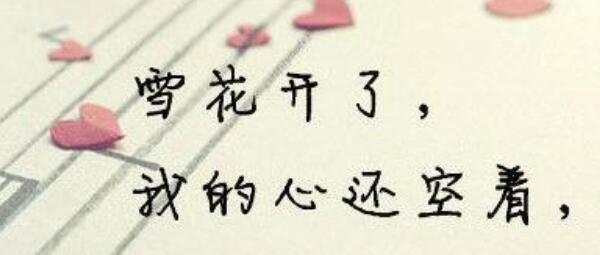 雪花开了，
我的心还空着，